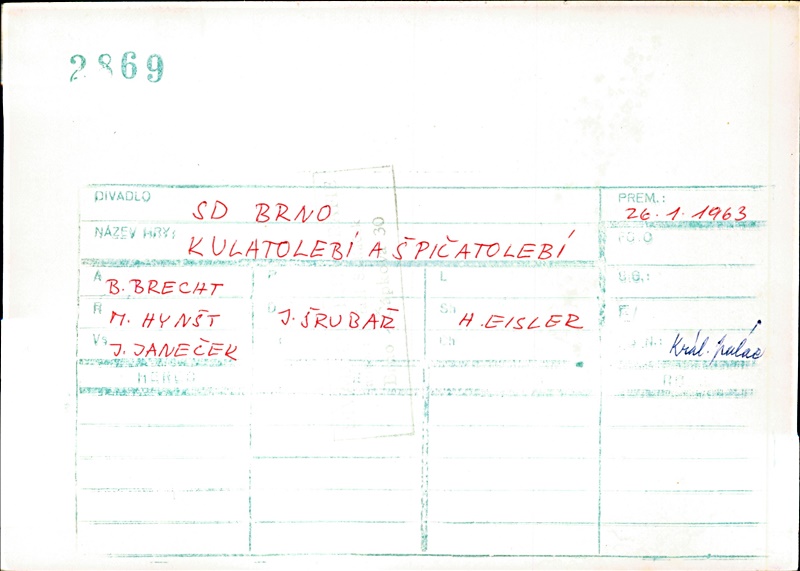 2869
DIVADLO SD BRNO PREM.: 26.1.1963
NÁZEV HRY: KULATOLEBÍ A ŠPIČATOLEBÍ
A B. BRECHT P L S.G.:
R M. HYNŠT J. ŠRUBAŘ H. EISLER F.:
J. JANEČEK Král. palác
30